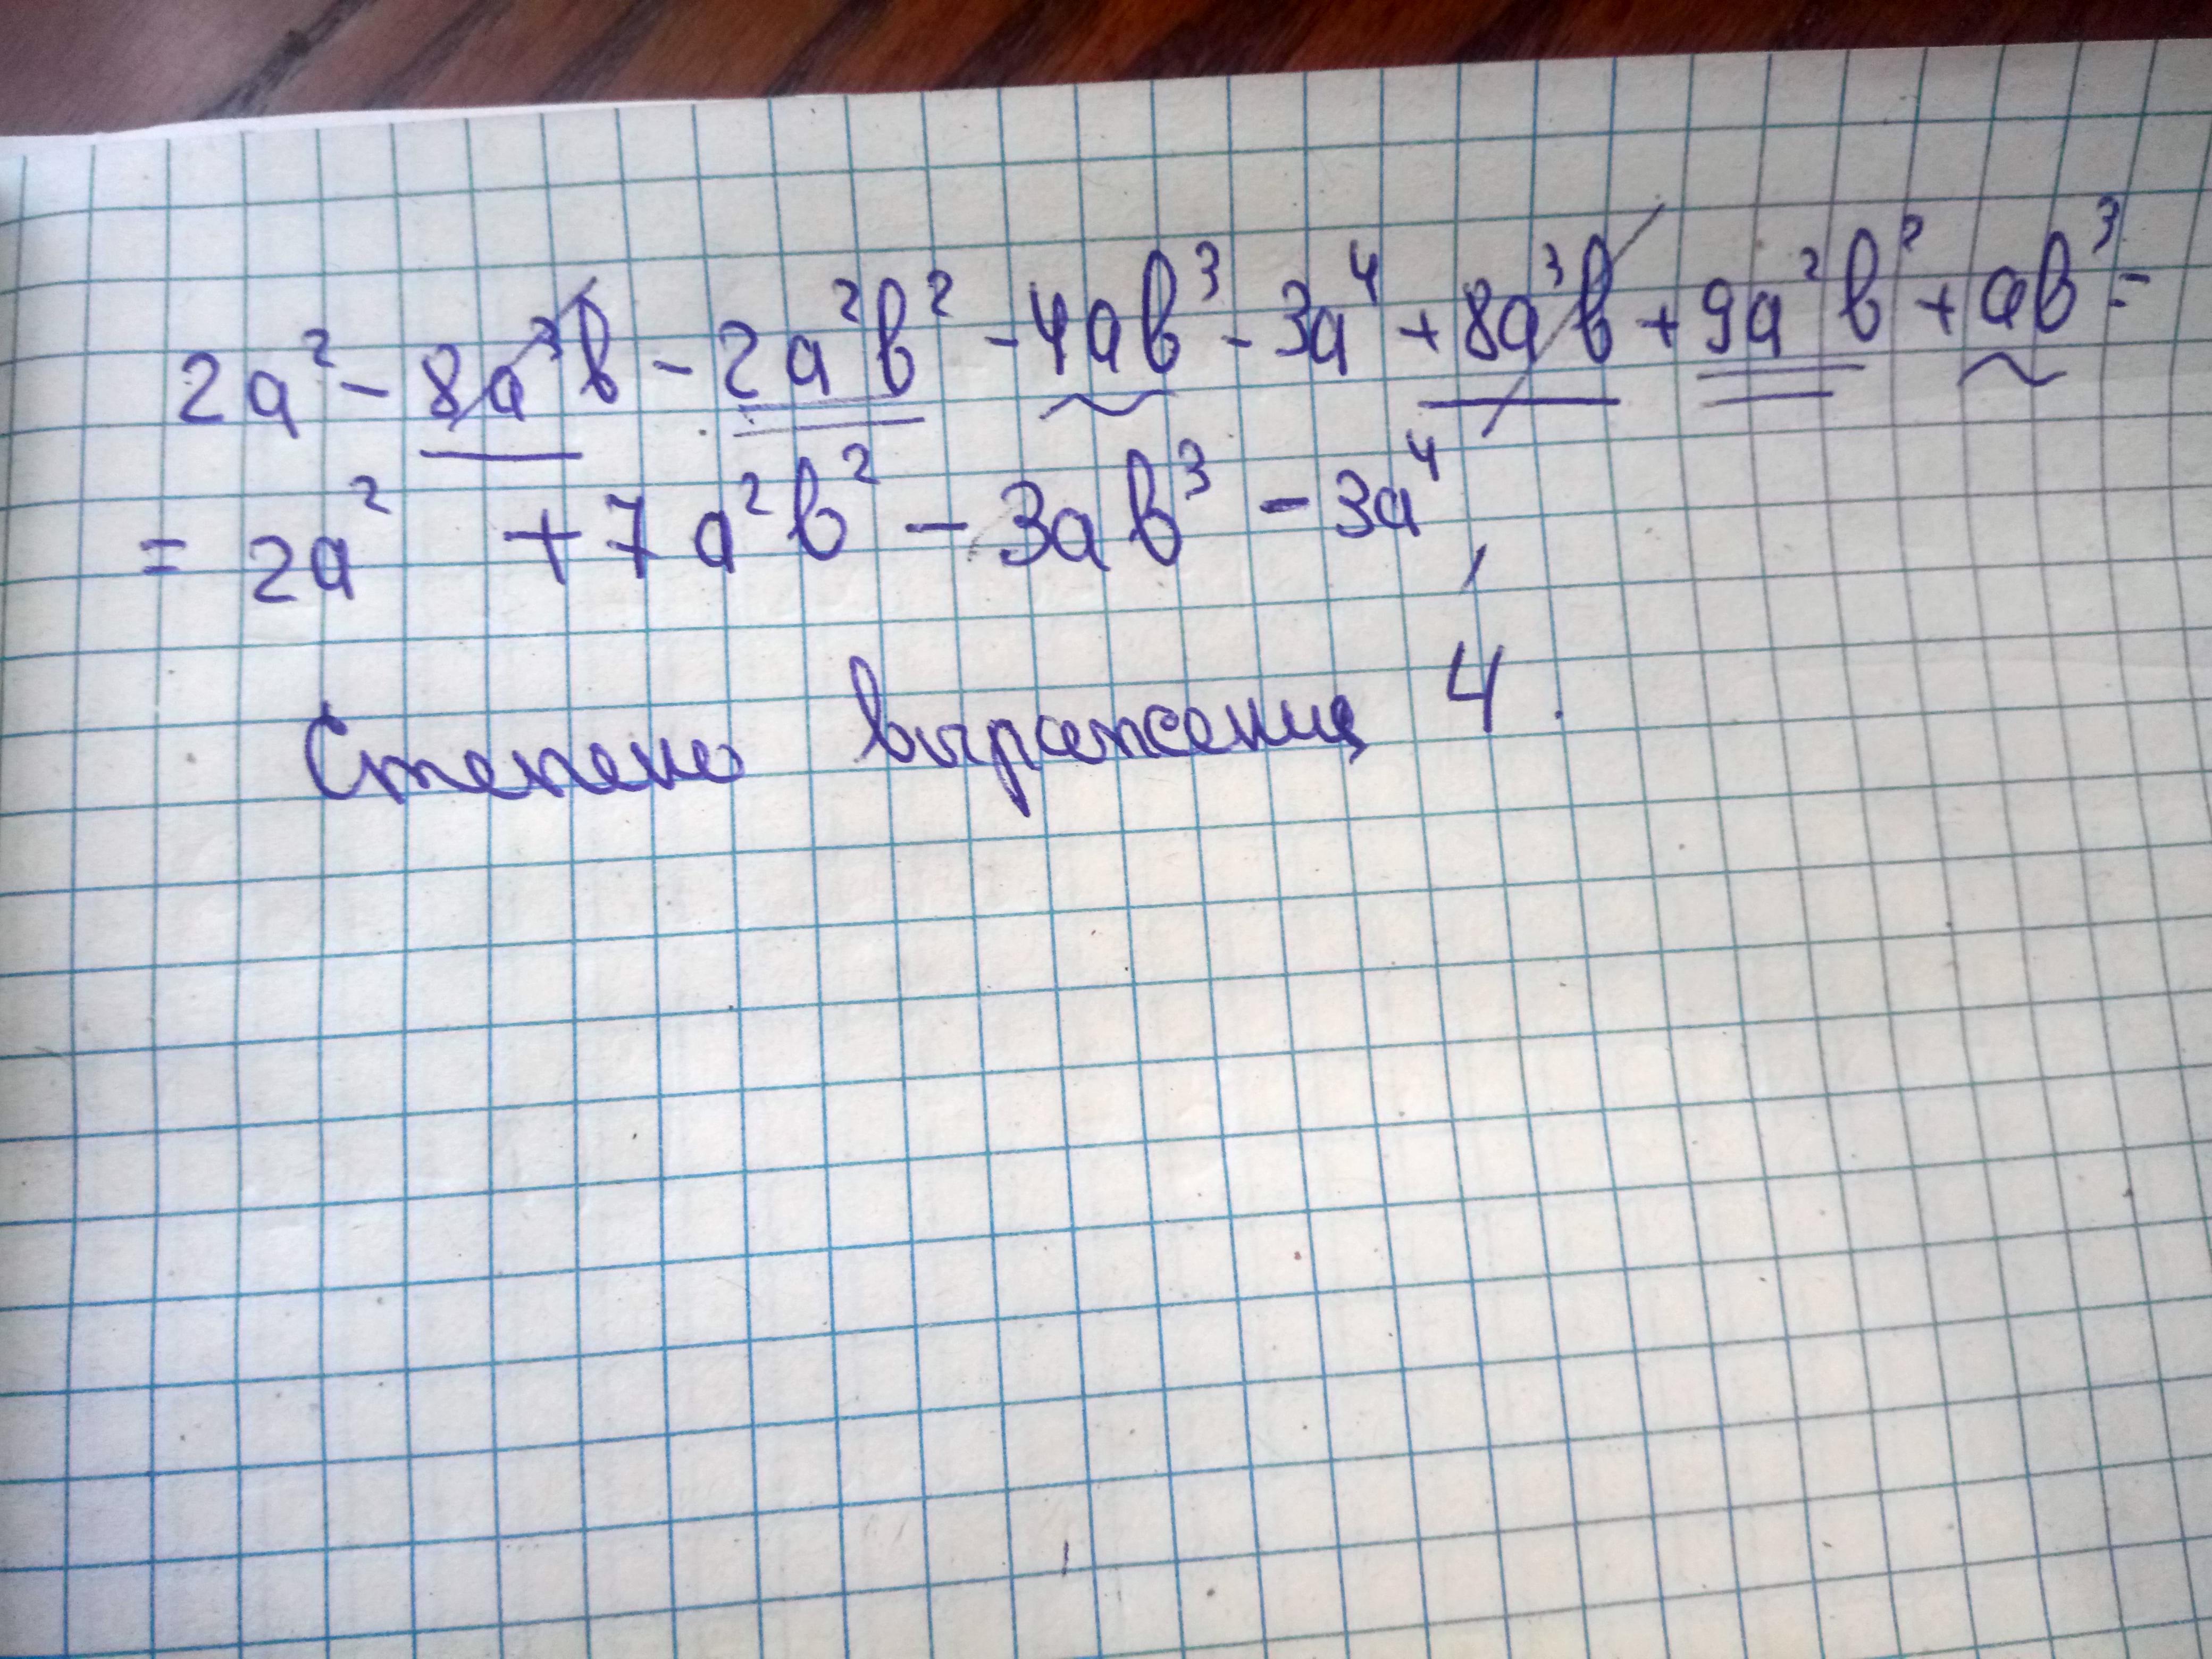 2a² - 8a³b - 2a²b² - 4ab³ - 3a⁴ + 8a³b + 9a²b² + ab³ =
= 2a² + 7a²b² - 3ab³ - 3a⁴,
Степень выражения 4.